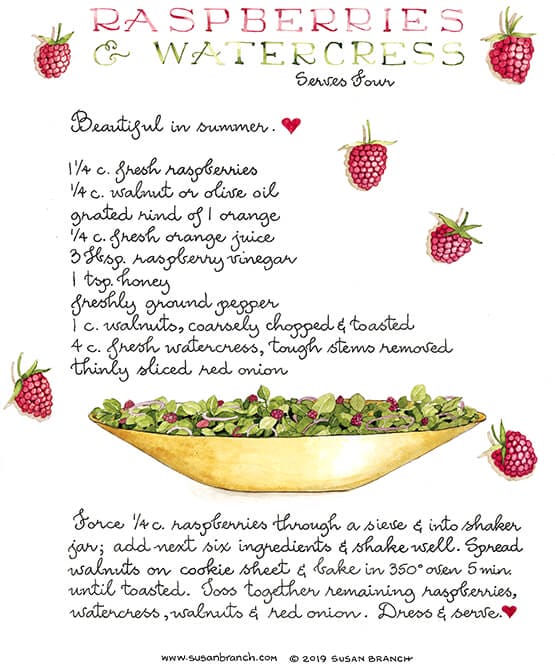 RASPBERRIES
& WATERCRESS
Serves Four
Beautiful in summer.
1 1/4 c. fresh raspberries
1/4 c. walnut or olive oil
grated rind of 1 orange
1/4 c. fresh orange juice
3 Tbsp. raspberry vinegar
1 tsp. honey
freshly ground pepper
1 c. walnuts, coarsely chopped & toasted
4 c. fresh watercress, tough stems removed
thinly sliced red onion
Force 1/4 c. raspberries through a sieve & into shaker
jar; add next six ingredients & shake well. Spread
walnuts on cookie sheet & bake in 350° oven 5 min.
until toasted. Toss together remaining raspberries,
watercress, walnuts & red onion. Dress & serve.
www.susanbranch.com © 2019 SUSAN BRANCH